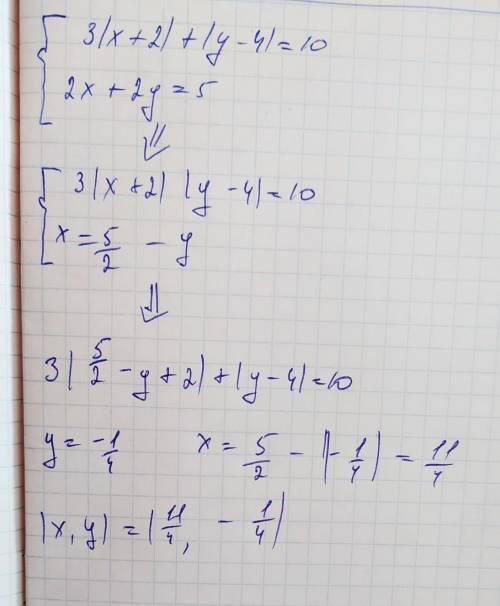 3|x+2|+|y-4|=10
2x+2y=5
⇓
3|x+2| |y-4|=10
x=5/2 - y
⇓
3|5/2 -y+2|+|y-4|=10
y=-1/4 x=5/2 - |-1/4| = 11/4
|x,y|=|11/4, -1/4|